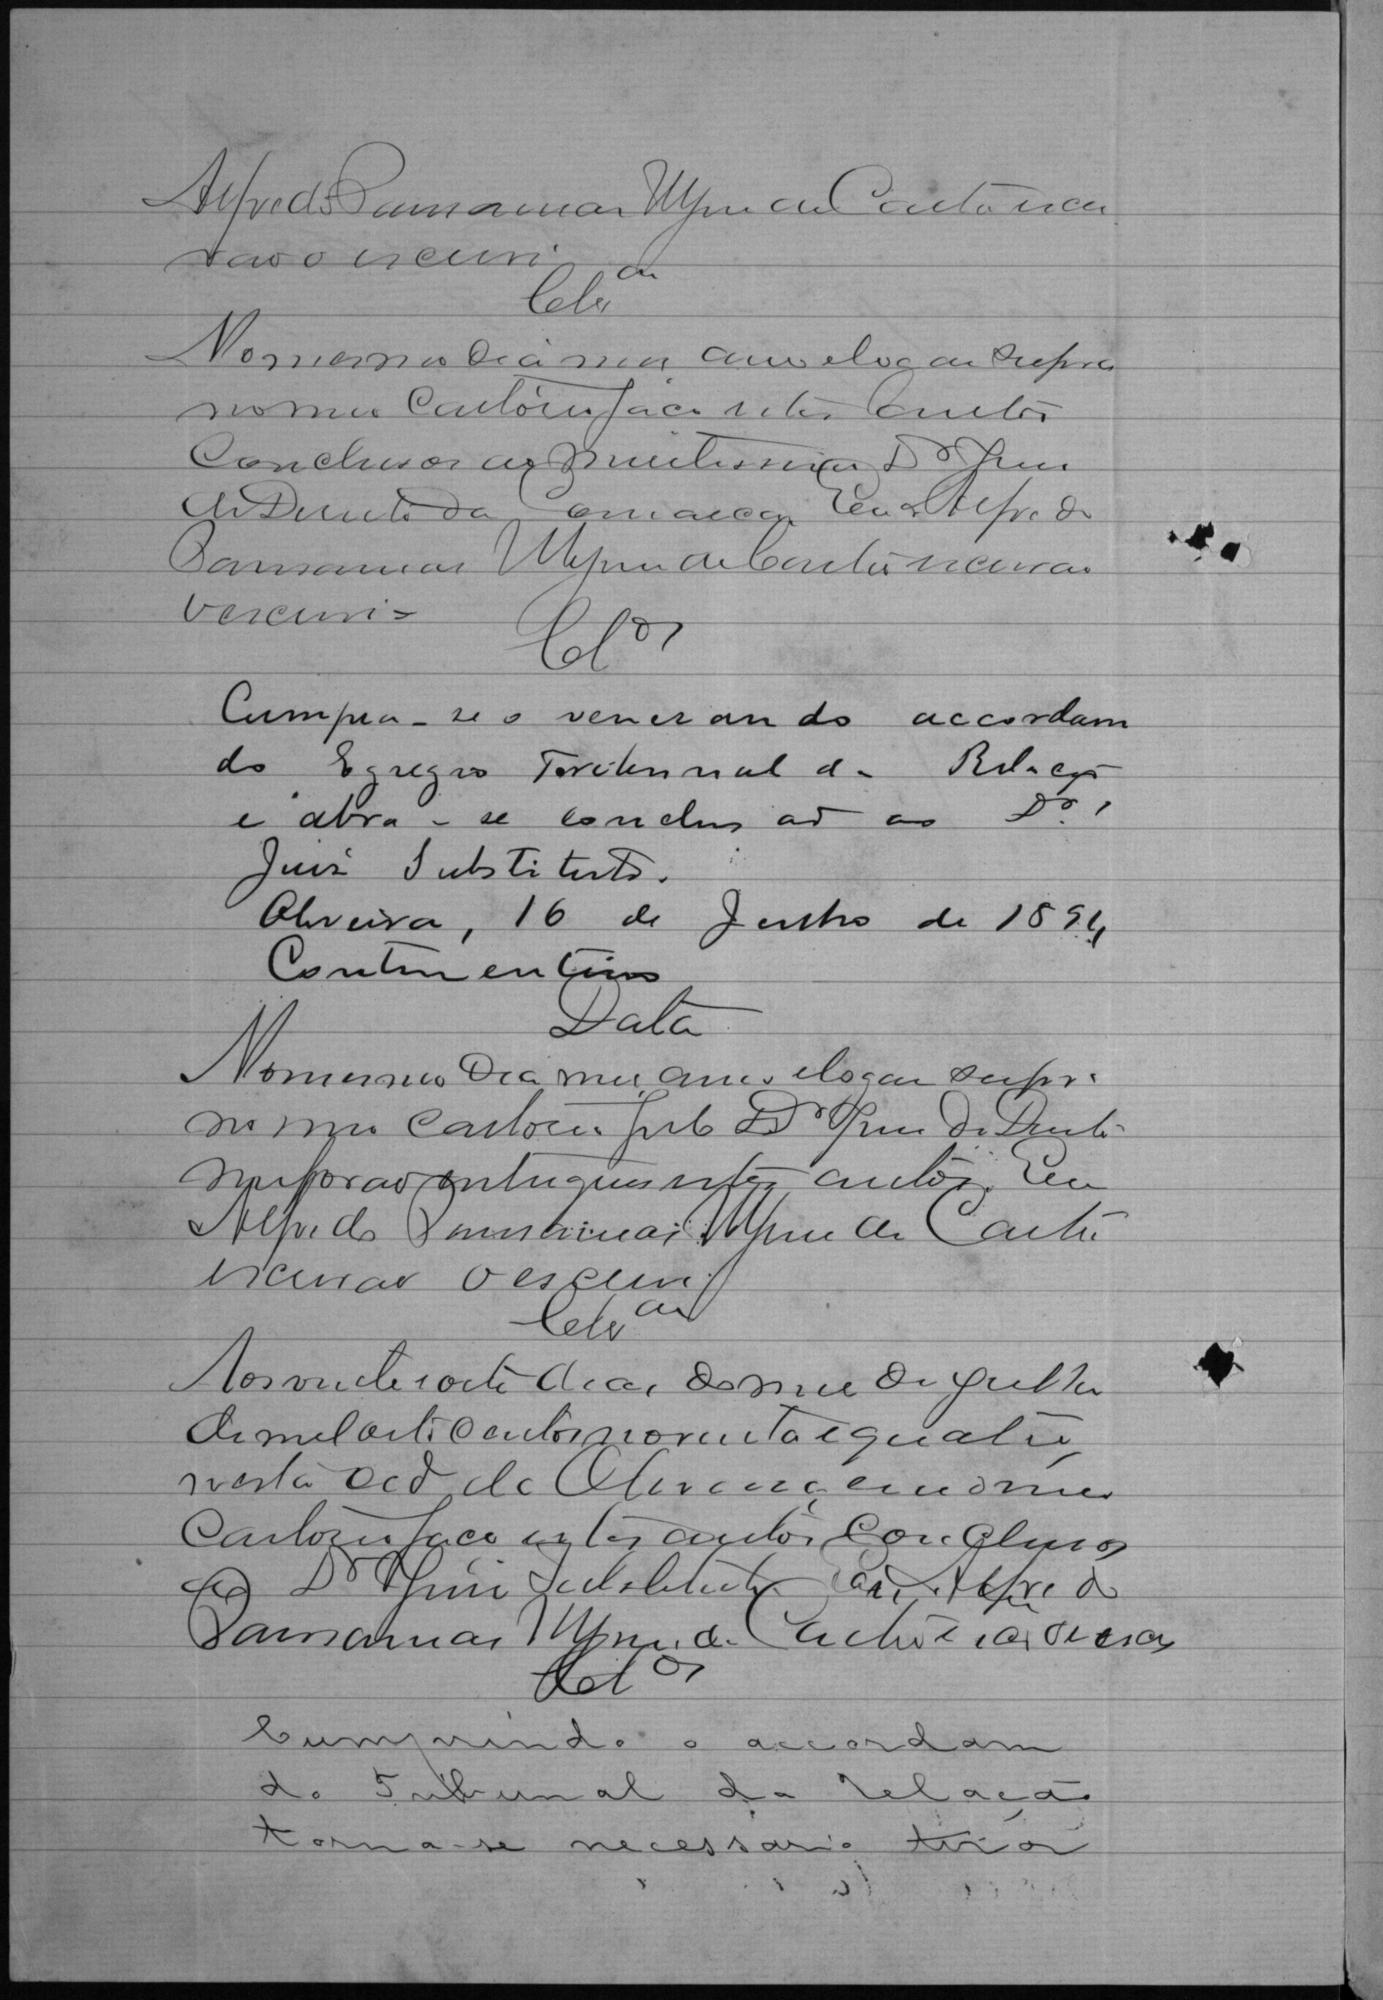 Alfredo Ramamar Mynn de Castro escri
vão o escrevi
Clsam
No mesmo dia mes anno e logar supra
no meu Cartorio faço estes autos
Conclusos ao meritissimo Dr Juiz
de Direito da Comarca, Eu Alfredo
de Castro escrivão
o escrevi =
Clos
Cumpra-se o venerando accordam
do Egregio Tribunal da Relação
e abra-se conclusão ao Dr.
Juiz Substituto.
Oliveira, 16 de Junho de 1894
Continentino
Data
No mesmo dia mes, anno e logar supra
no meu cartorio pelo Dr Juiz de Direito
me forão entregues estes autos. Eu
Alfredo de Castro
escrivão o escrevi
Clsam
Aos vinte e oito dias do mes de Julho
de mil oito centos noventa e quatro,
nesta cide de Oliveira, em o meu
Cartorio faço estes autos Conclusos
ao Dr Juiz Substituto Eu, Alfredo
de Castro
Clos
Cumprindo o accordam
do Tribunal da relação
torna-se necessario